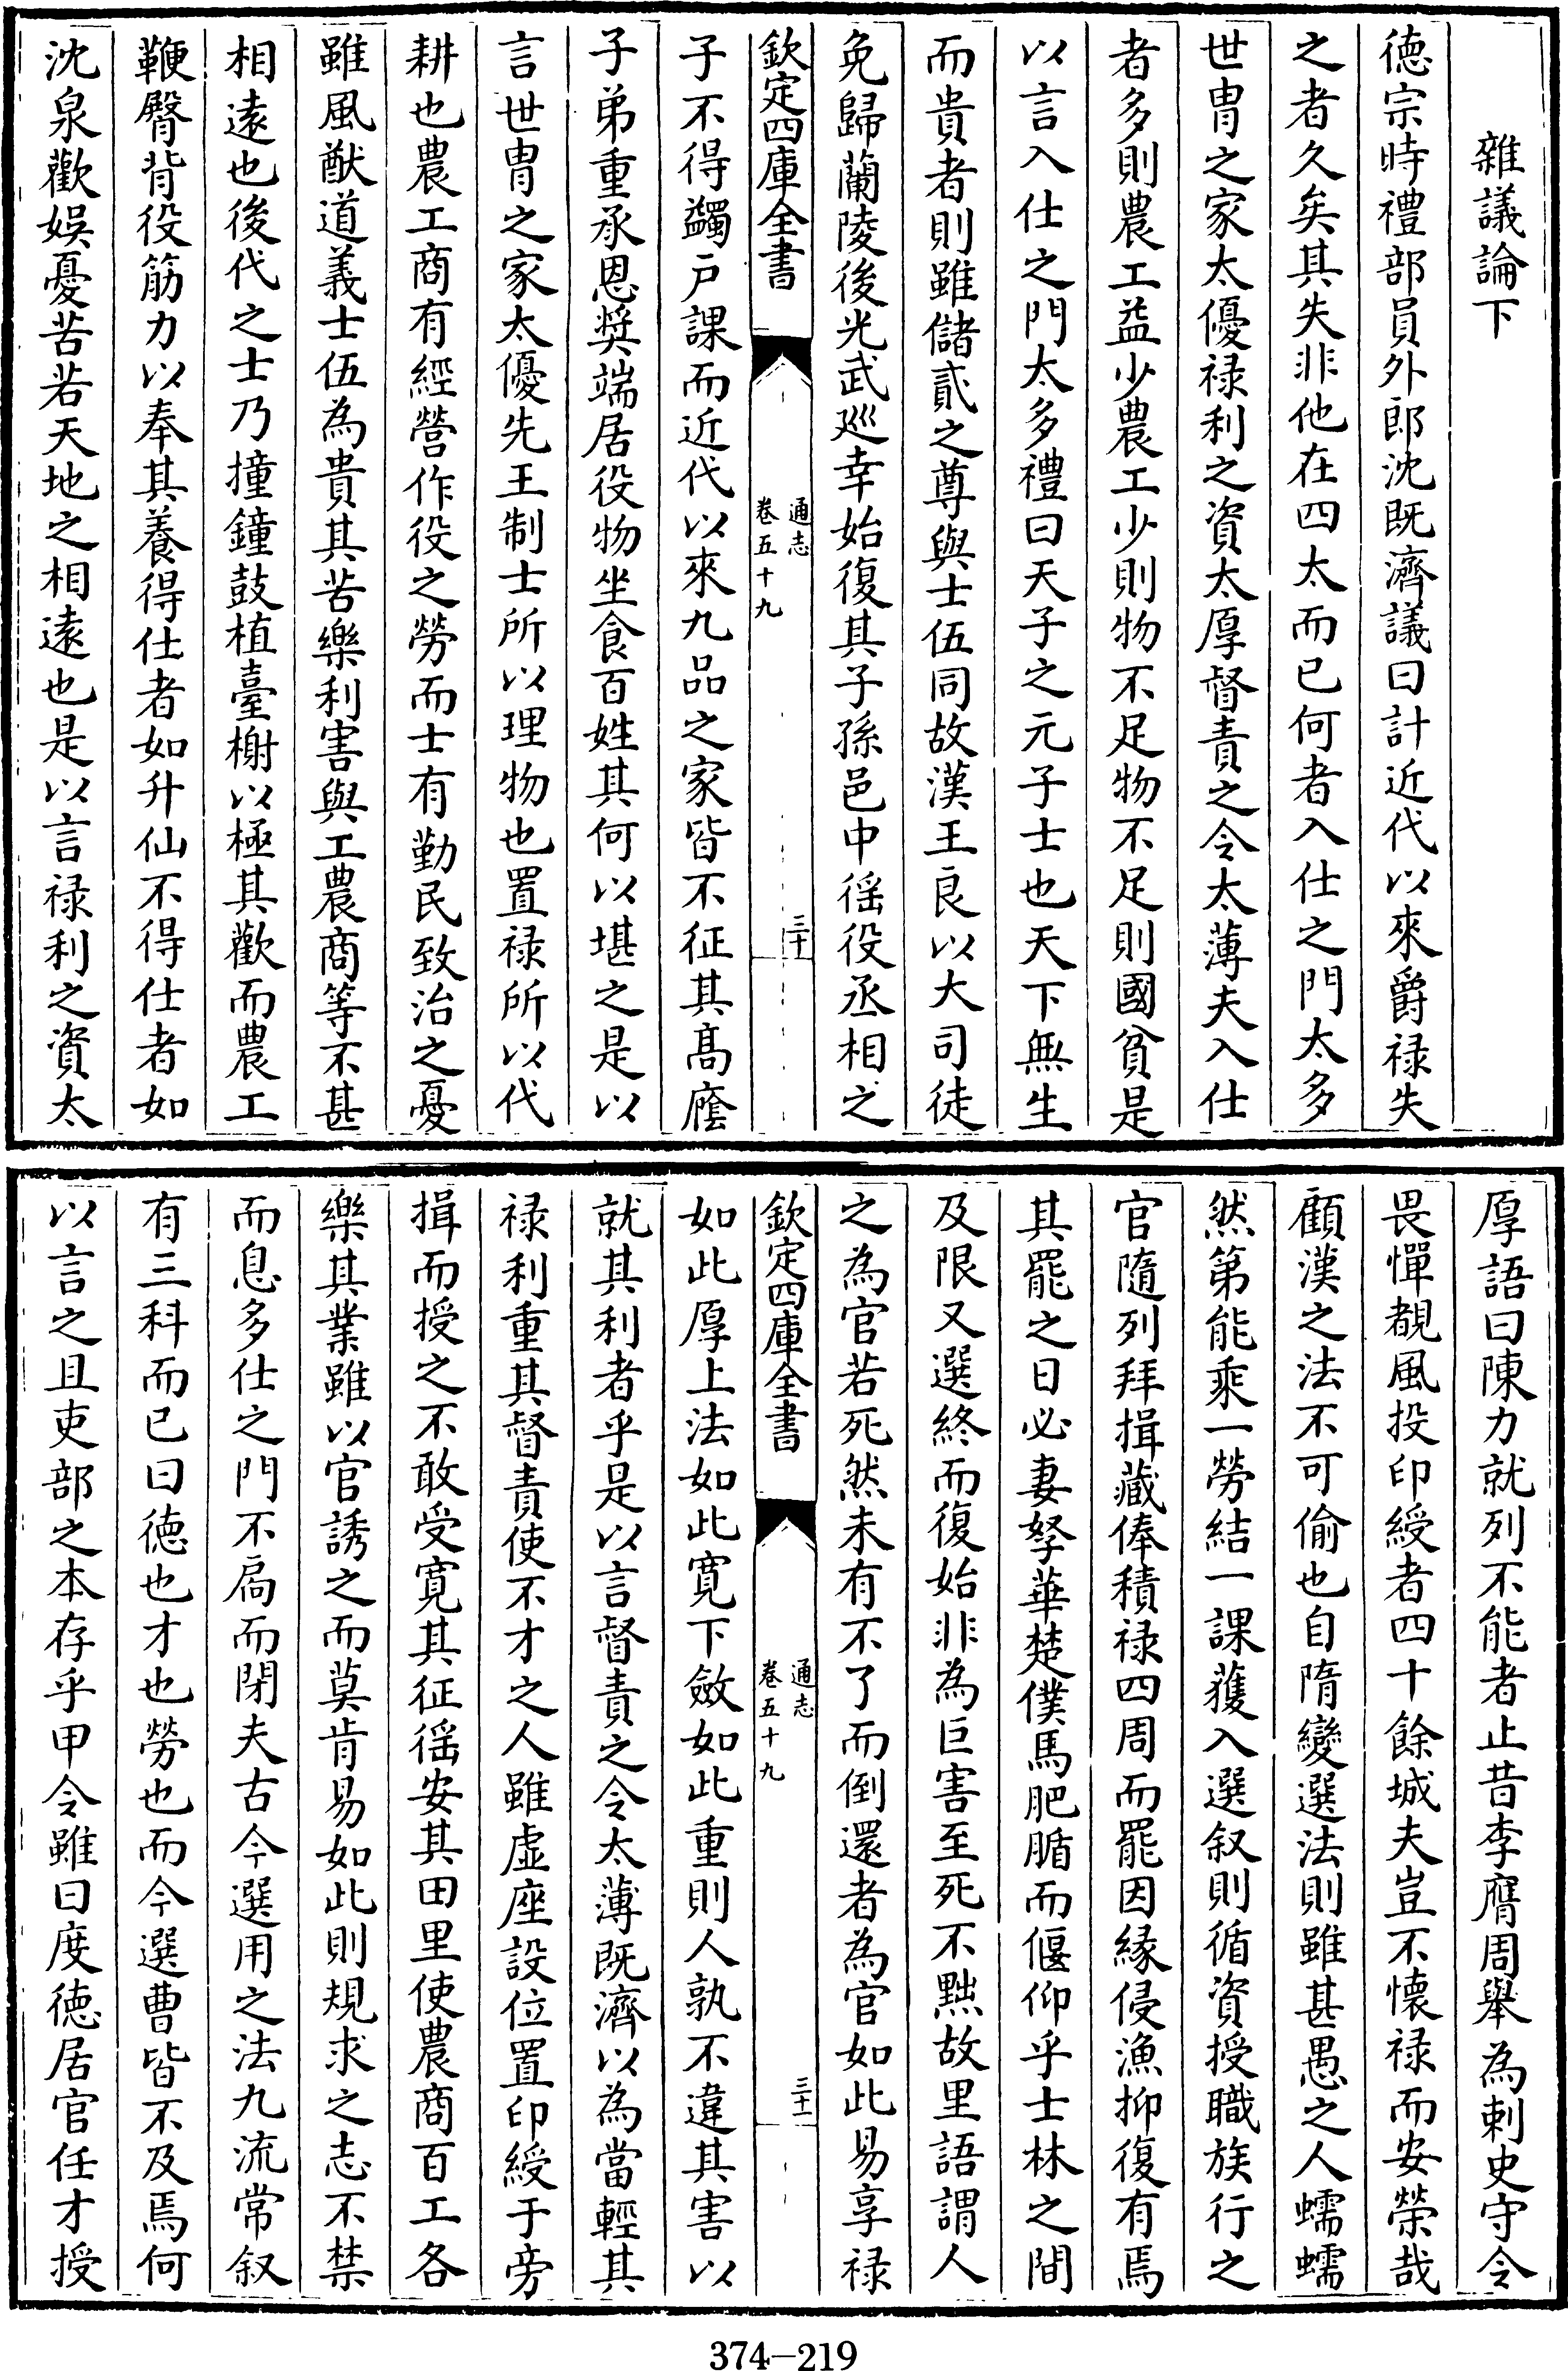 雜議論下
德宗時禮部員外郎沈既濟議曰計近代以來爵禄失
之者久矣其失非他在四太而已何者入仕之門太多
世胄之家太優禄利之資太厚督責之令太薄夫入仕
者多則農工益少農工少則物不足物不足則國貧是
以言入仕之門太多禮曰天子之元子士也天下無生
而貴者則雖儲貳之尊與士伍同故漢王良以大司徒
免歸蘭陵後光武廵幸始復其子孫邑中徭役丞相之
欽定四庫全書
通志
卷五十九
三十
子不得蠲戶課而近代以來九品之家皆不征其髙䕃
子弟重承恩奨端居役物坐食百姓其何以堪之是以
言世胄之家太優先王制士所以理物也置禄所以代
耕也農工商有經營作役之勞而士有勤民致治之憂
雖風猷道義士伍為貴其苦樂利害與工農商等不甚
相遠也後代之士乃撞鐘鼓植臺榭以極其歡而農工
鞭臀背役筋力以奉其養得仕者如升仙不得仕者如
沈泉歡娛憂苦若天地之相遠也是以言禄利之資太
厚語曰陳力就列不能者止昔李膺周舉為刺史守令
畏憚覩風投印綬者四十餘城夫豈不懷禄而安榮哉
顧漢之法不可偷也自隋變選法則雖甚愚之人蠕蠕
然第能乘一勞結一課獲入選叙則循資授職族行之
官隨列拜揖藏俸積禄四周而罷因緣侵漁抑復有焉
其罷之日必妻孥華楚僕馬肥腯而偃仰乎士林之間
及限又選終而復始非為巨害至死不黜故里語謂人
之為官若死然未有不了而倒還者為官如此易享禄
欽定四庫全書
通志
卷五十九
三十一
如此厚上法如此寛下斂如此重則人孰不違其害以
就其利者乎是以言督責之令太薄既濟以為當輕其
禄利重其督責使不才之人雖虛座設位置印綬于旁
揖而授之不敢受寛其征徭安其田里使農商百工各
樂其業雖以官誘之而莫肯易如此則規求之志不禁
而息多仕之門不扃而閉夫古今選用之法九流常叙
有三科而已曰德也才也勞也而今選曹皆不及焉何
以言之且吏部之本存乎甲令雖曰度德居官任才授
374-219